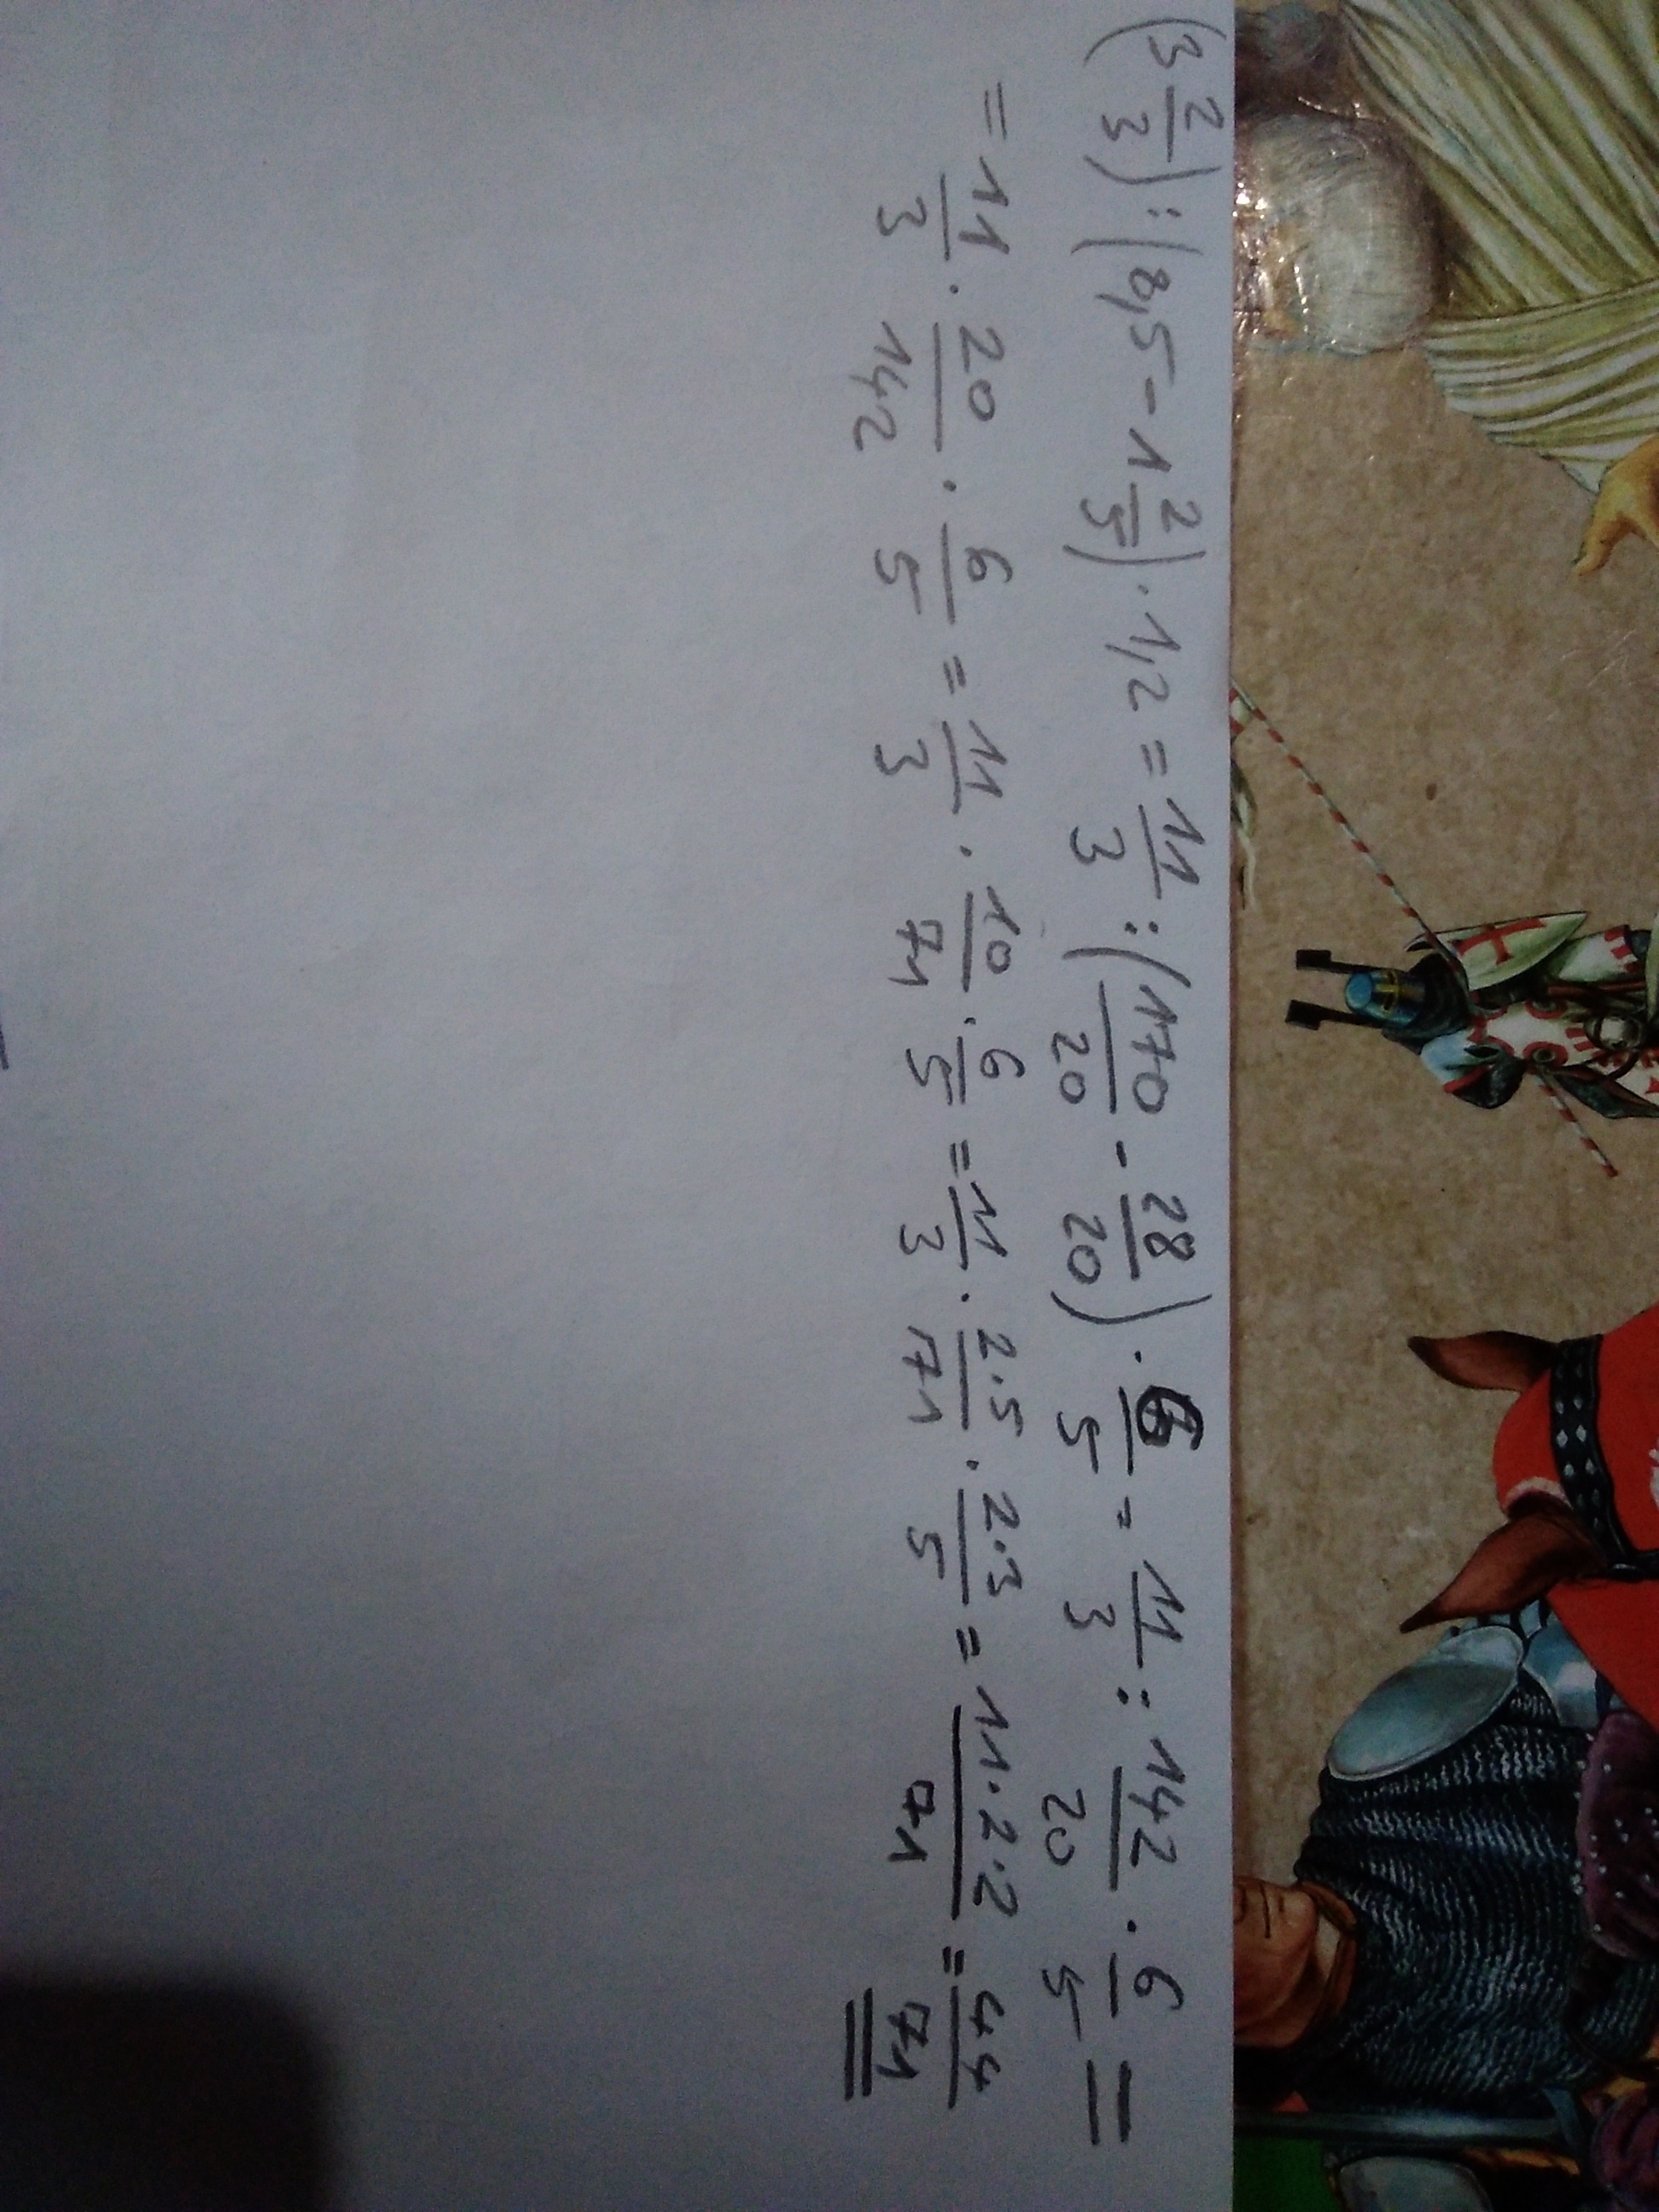 (3 2/3) : (8,5 - 1 2/5) · 1,2 = 11/3 : (170/20 - 28/20) · 6/5 = 11/3 : 142/20 · 6/5 =
= 11/3 · 20/142 · 6/5 = 11/3 · 10/71 · 6/5 = 11/3 · 2·5/71 · 2·3/5 = 11·2·2/71 = 44/71